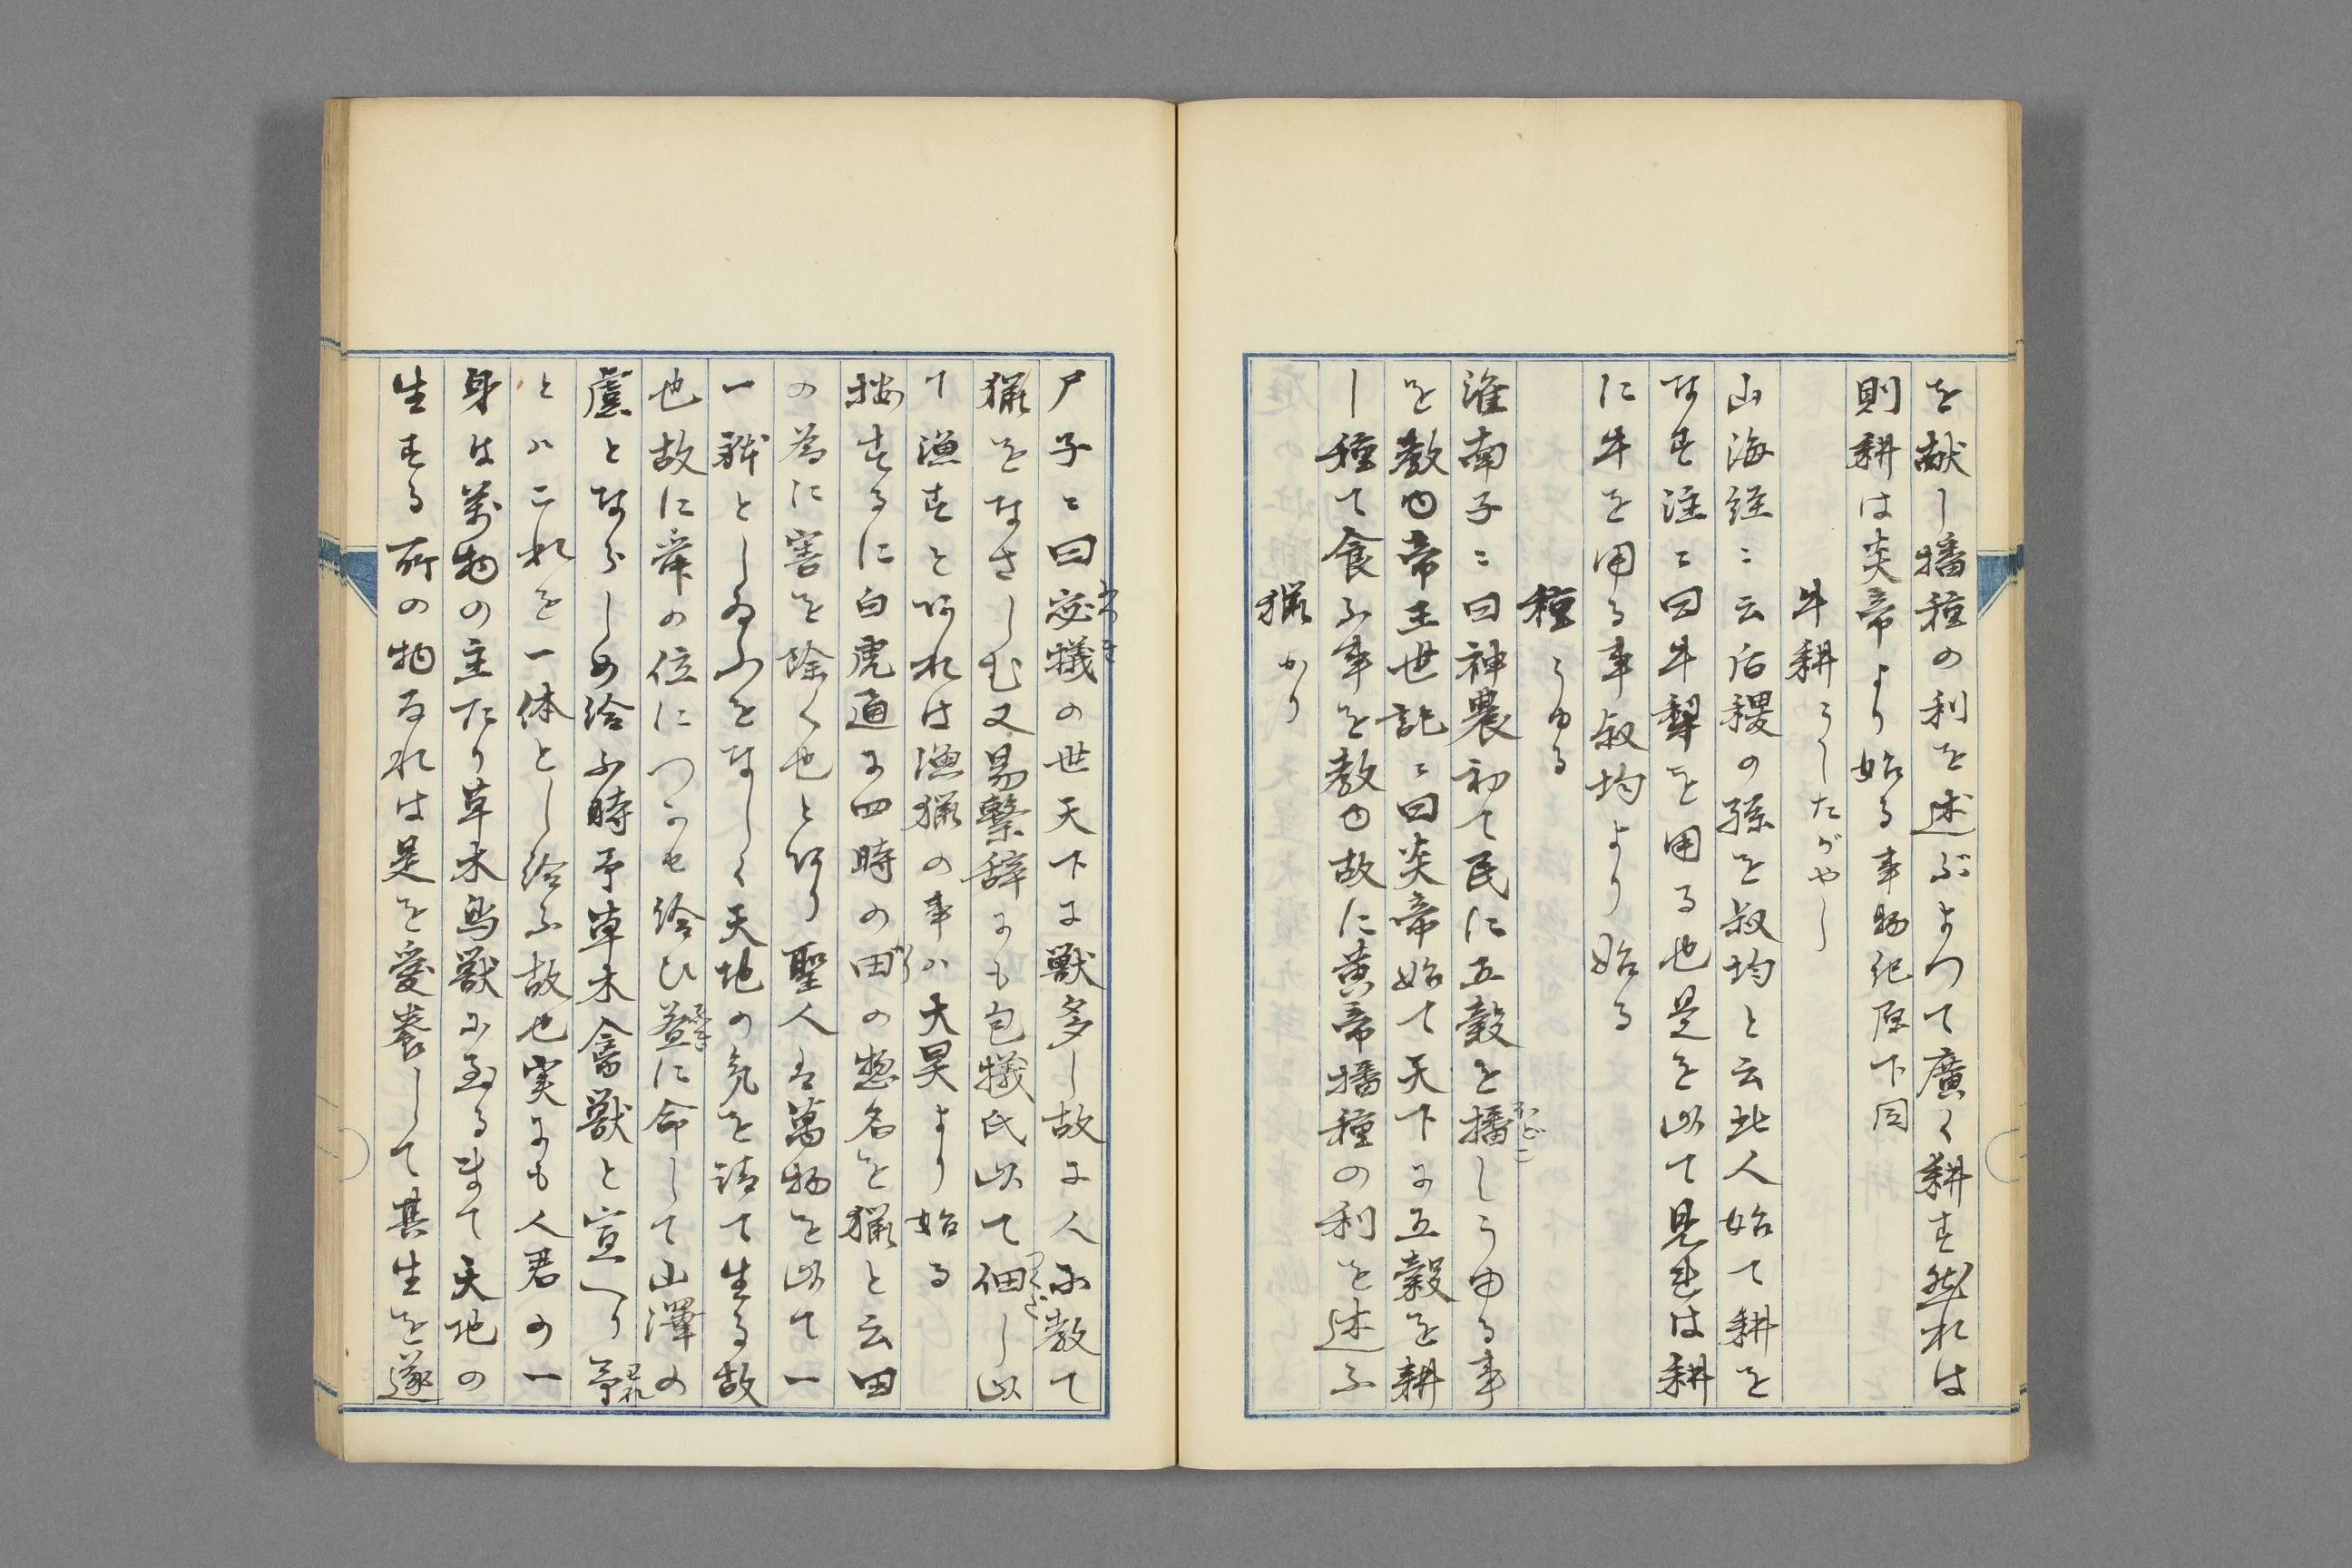 を献し播種の利を述ぶよつて廣く耕す然れは
則耕は炎帝より始る事物紀原下同
牛耕うしたがやし
山海経ニ云后稷の孫を叔均と云此人始て耕を
なす注ニ曰牛犁を用る也是を以て見れは耕
に牛を用る事叔均より始る
種うゆる
淮南子ニ曰神農初て民に五穀を播しうゆる事
を教ゆ帝王世記ニ曰炎帝始て天下に五穀を耕
し種て食ふ事を教ゆ故に黄帝播種の利を述ふ
猟かり
尸子ニ曰宓犠の世天下に獣多し故に人に教て
猟をなさしむ又易繋辞にも包犠氏以て佃し以
て漁すと何れは漁猟の事ハ大昊より始る
按するに白虎通に四時の田の惣名を猟と云田
の為に害を除く也と何り聖人は萬物を以て一
一躰としゐふをなしく天地の気を請て生る故
也故に舜の位につかせ給ひ益に命して山澤の
虞とならしめ給ふ時予草木禽獣と宣へり予
とハこれを一体とし給ふ故也実にも人君の一
身は萬物の主たり草木鳥獣に至るまて天地の
生する所の物なれは是を愛養して其生を遂